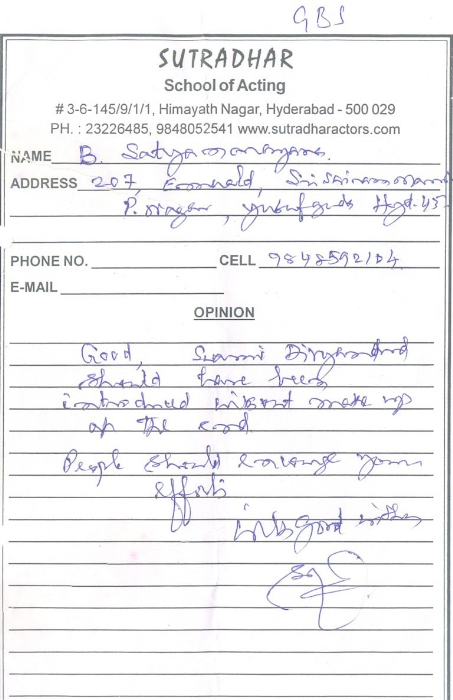 GBS
SUTRADHAR
School of Acting
# 3-6-145/9/1/1, Himayath Nagar, Hyderabad - 500 029
PH. : 23226485, 9848052541 www.sutradharactors.com
NAME B. Satyanarayana.
ADDRESS 207, Emerald,
P. Nagar, yusufguda Hyd.45
PHONE NO. CELL 9848592104
E-MAIL
OPINION
Good, Swami Divyanand
should have been
introduced without make up
at the end
People should encourage your
efforts
with good wishes